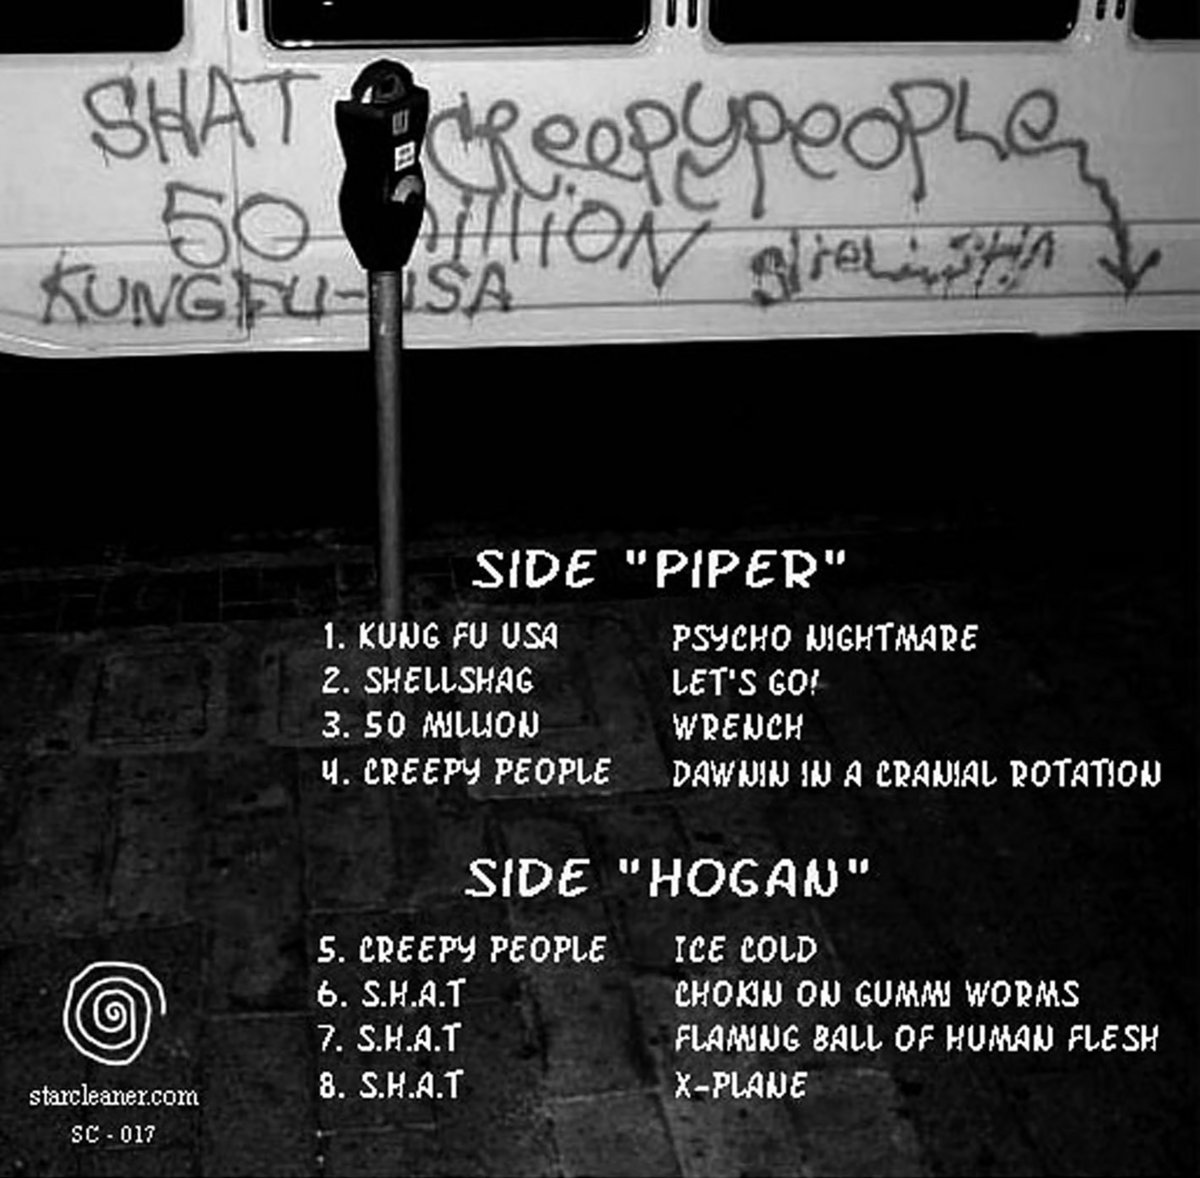 SHAT
CReepypeople
50 million
KUNG FU-USA
SIDE "PIPER"
1. KUNG FU USA PSYCHO NIGHTMARE
2. SHELLSHAG LET'S GO!
3. 50 MILLION WRENCH
4. CREEPY PEOPLE DAWNIN IN A CRANIAL ROTATION
SIDE "HOGAN"
5. CREEPY PEOPLE ICE COLD
6. S.H.A.T CHOKIN ON GUMMI WORMS
7. S.H.A.T FLAMING BALL OF HUMAN FLESH
8. S.H.A.T X-PLANE
starcleaner.com
SC - 017